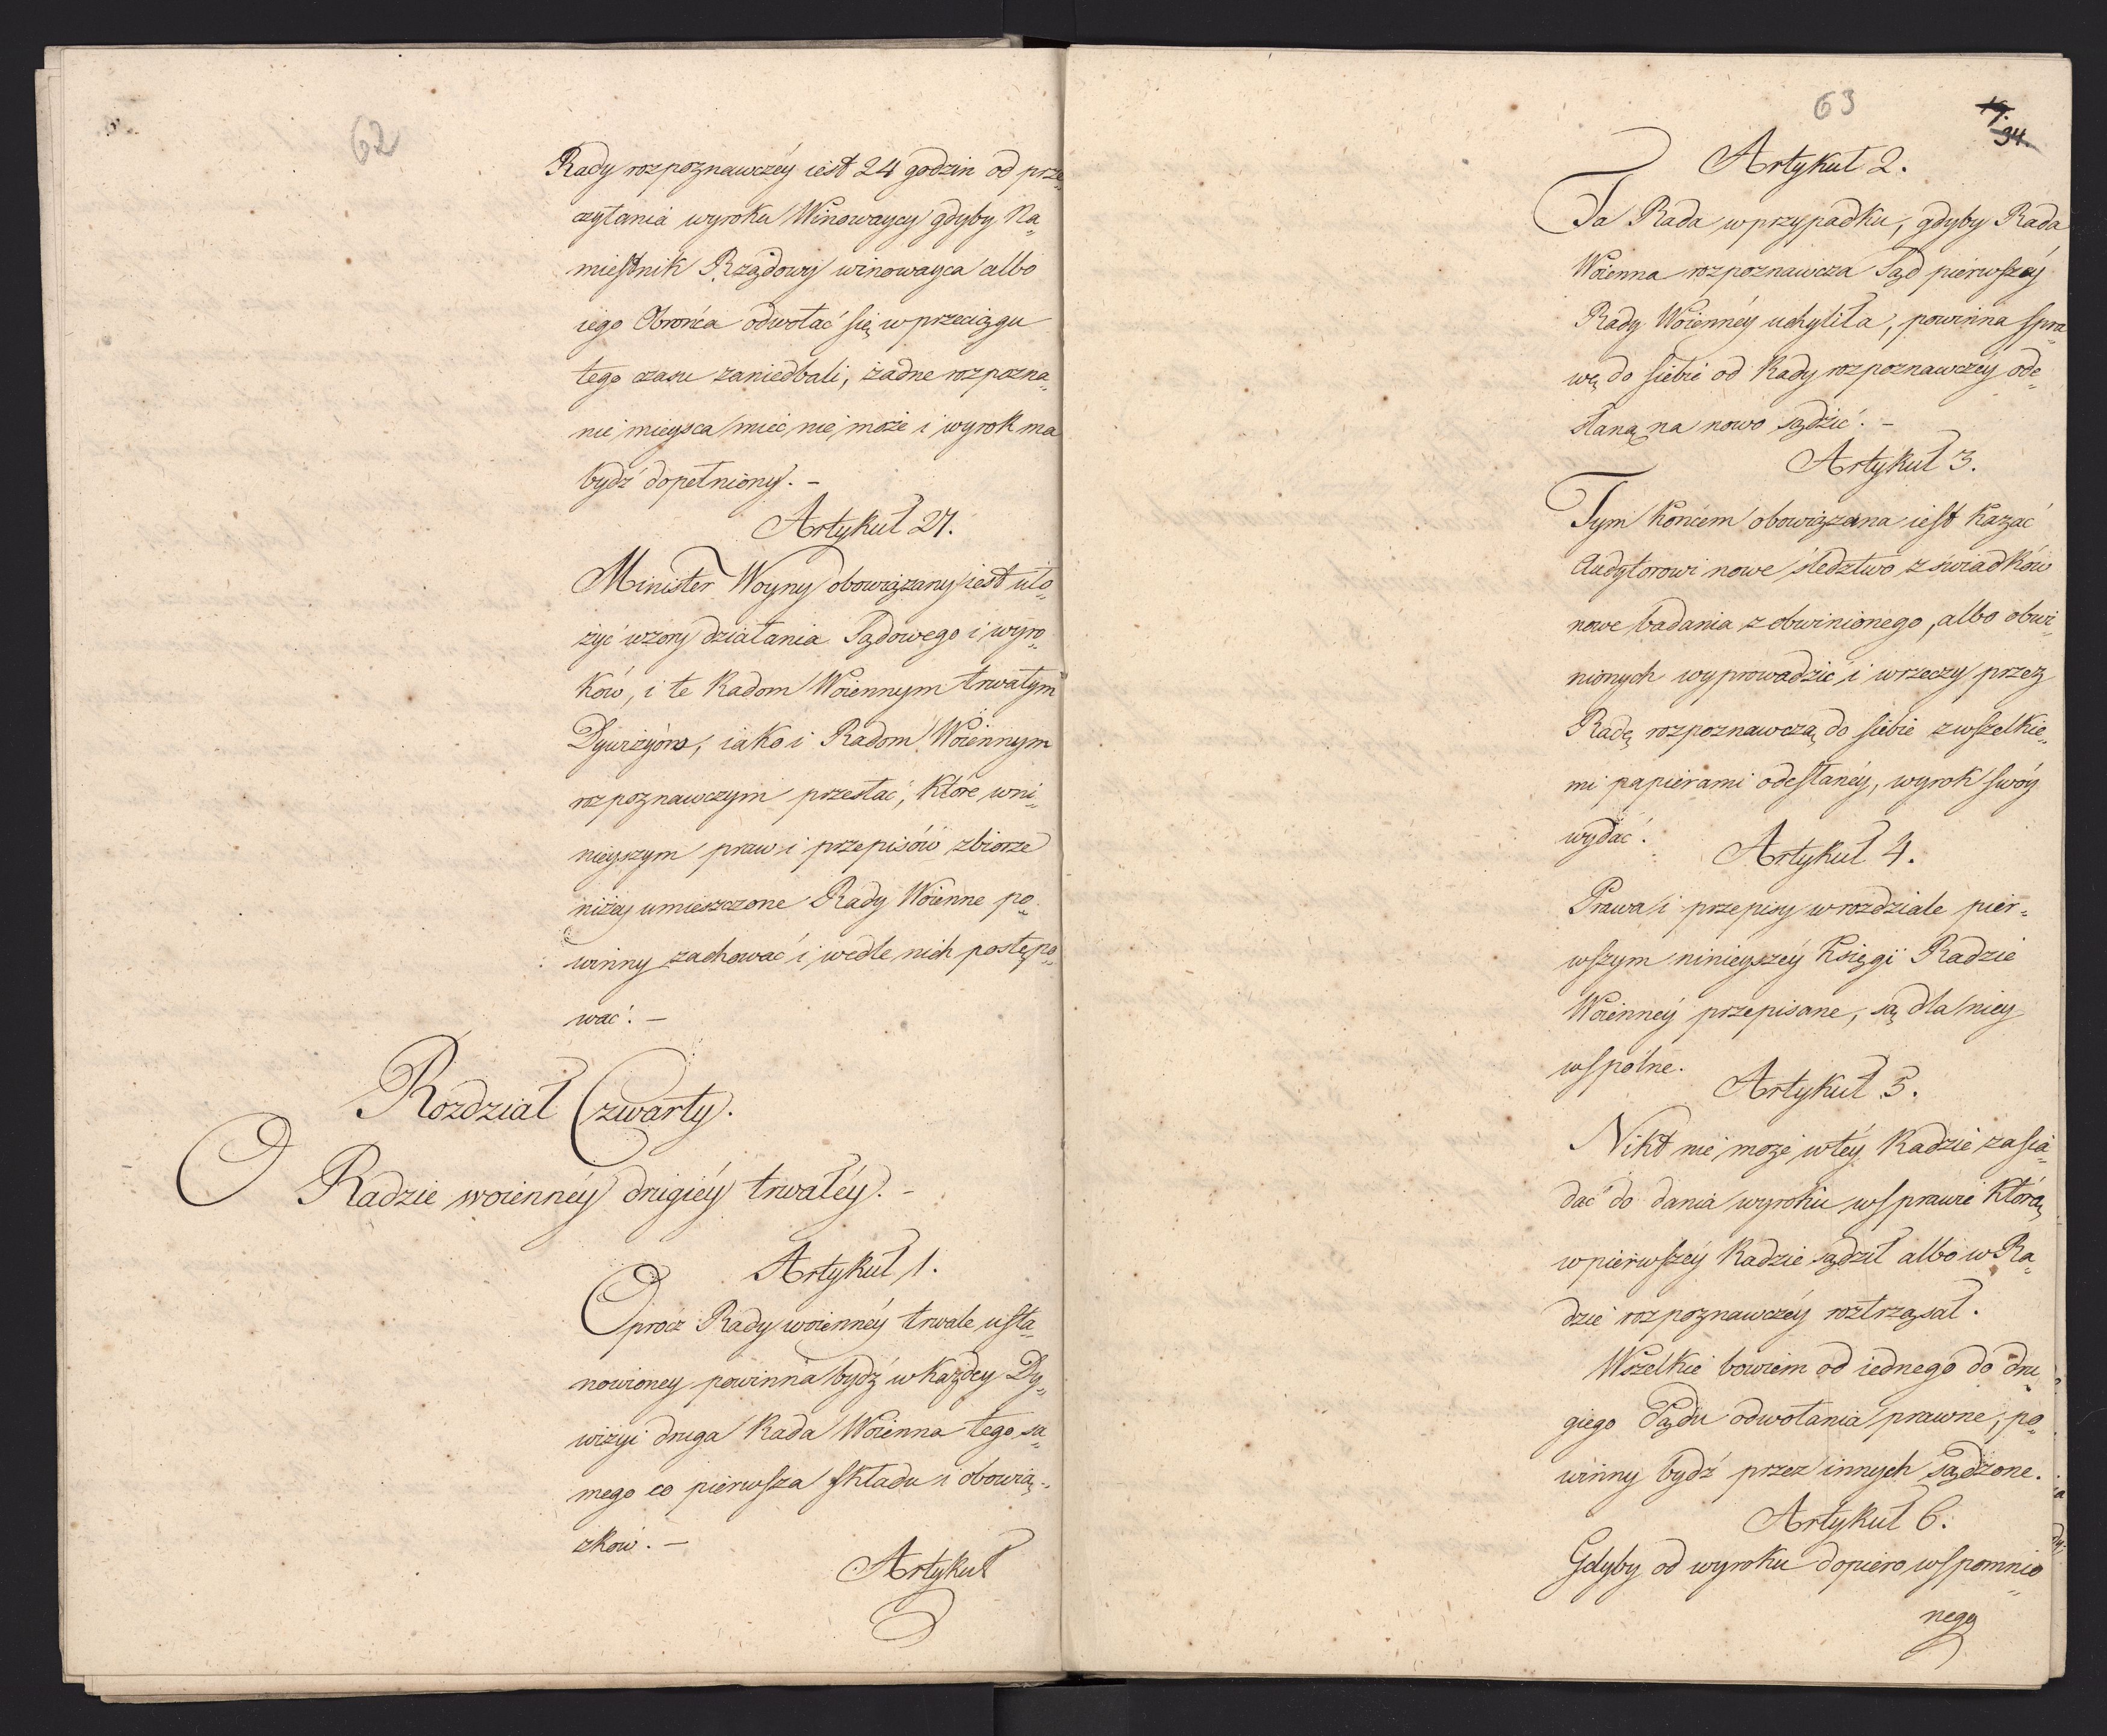 62
Rady rozpoznawczéy iest 24 godzin od prze„
czytania wyroku Winowaycy gdyby Na„
miestnik Rządowy winowayca albo
iego Obrońca odwołać się w przeciągu
tego czasu zaniedbali, żadne rozpozna„
nie mieysca mieć nie może i wyrok ma
bydź dopełniony. –
Artykuł 27.
Minister Woyny obowiązany iest uło„
żyć wzory działania Sądowego i wyro„
ków, i te Radom Woiennym trwałym
Dywizyów, iako i Radom Woiennym
rozpoznawczym przesłać, które w ni„
nieyszym praw i przepisów zbiorze
niżey umieszczone Rady Woienne po„
winny zachować i wedle nich postępo„
wać. –
Rozdział Czwarty.
O Radzie woiennéy drugiéy trwałéy. –
Artykuł 1.
Oprócz Rady woiennéy trwale usta„
nowioney powinna bydź w każdey Dy„
wizyi druga Rada Woienna tego sa„
mego co pierwsza składu i obowią„
zków. –
Artykuł
63
19.
34.
Artykuł 2.
Ta Rada w przypadku, gdyby Rada
Woienna rozpoznawcza Sąd pierwszéy
Rady Woiennéy uchyliła, powinna spra„
wę do siebie od Rady rozpoznawczéy ode„
słaną na nowo sądzić. –
Artykuł 3.
Tym końcem obowiązana iest kazać
Audytorowi nowe śledztwo z świadków
nowe badania z obwinionego, albo obwi„
nionych wyprowadzić i w rzeczy przez
Radę rozpoznawczą do siebie z wszelkie„
mi papierami odesłanéy, wyrok swóy
wydać.
Artykuł 4.
Prawa i przepisy w rozdziale pier„
wszym ninieyszéy Księgi Radzie
Woiennéy przepisane, są dla niey
wspólne.
Artykuł 5.
Nikt nie może w téy Radzie zasia„
dać do dania wyroku w sprawie którą
w pierwszéy Radzie sądził albo w Ra„
dzie rozpoznawczéy roztrząsał.
Wszelkie bowiem od iednego do dru„
giego Sądu odwołania prawne, po„
winny bydź przez innych sądzone.
Artykuł 6.
Gdyby od wyroku dopiero wspomnio„
nego